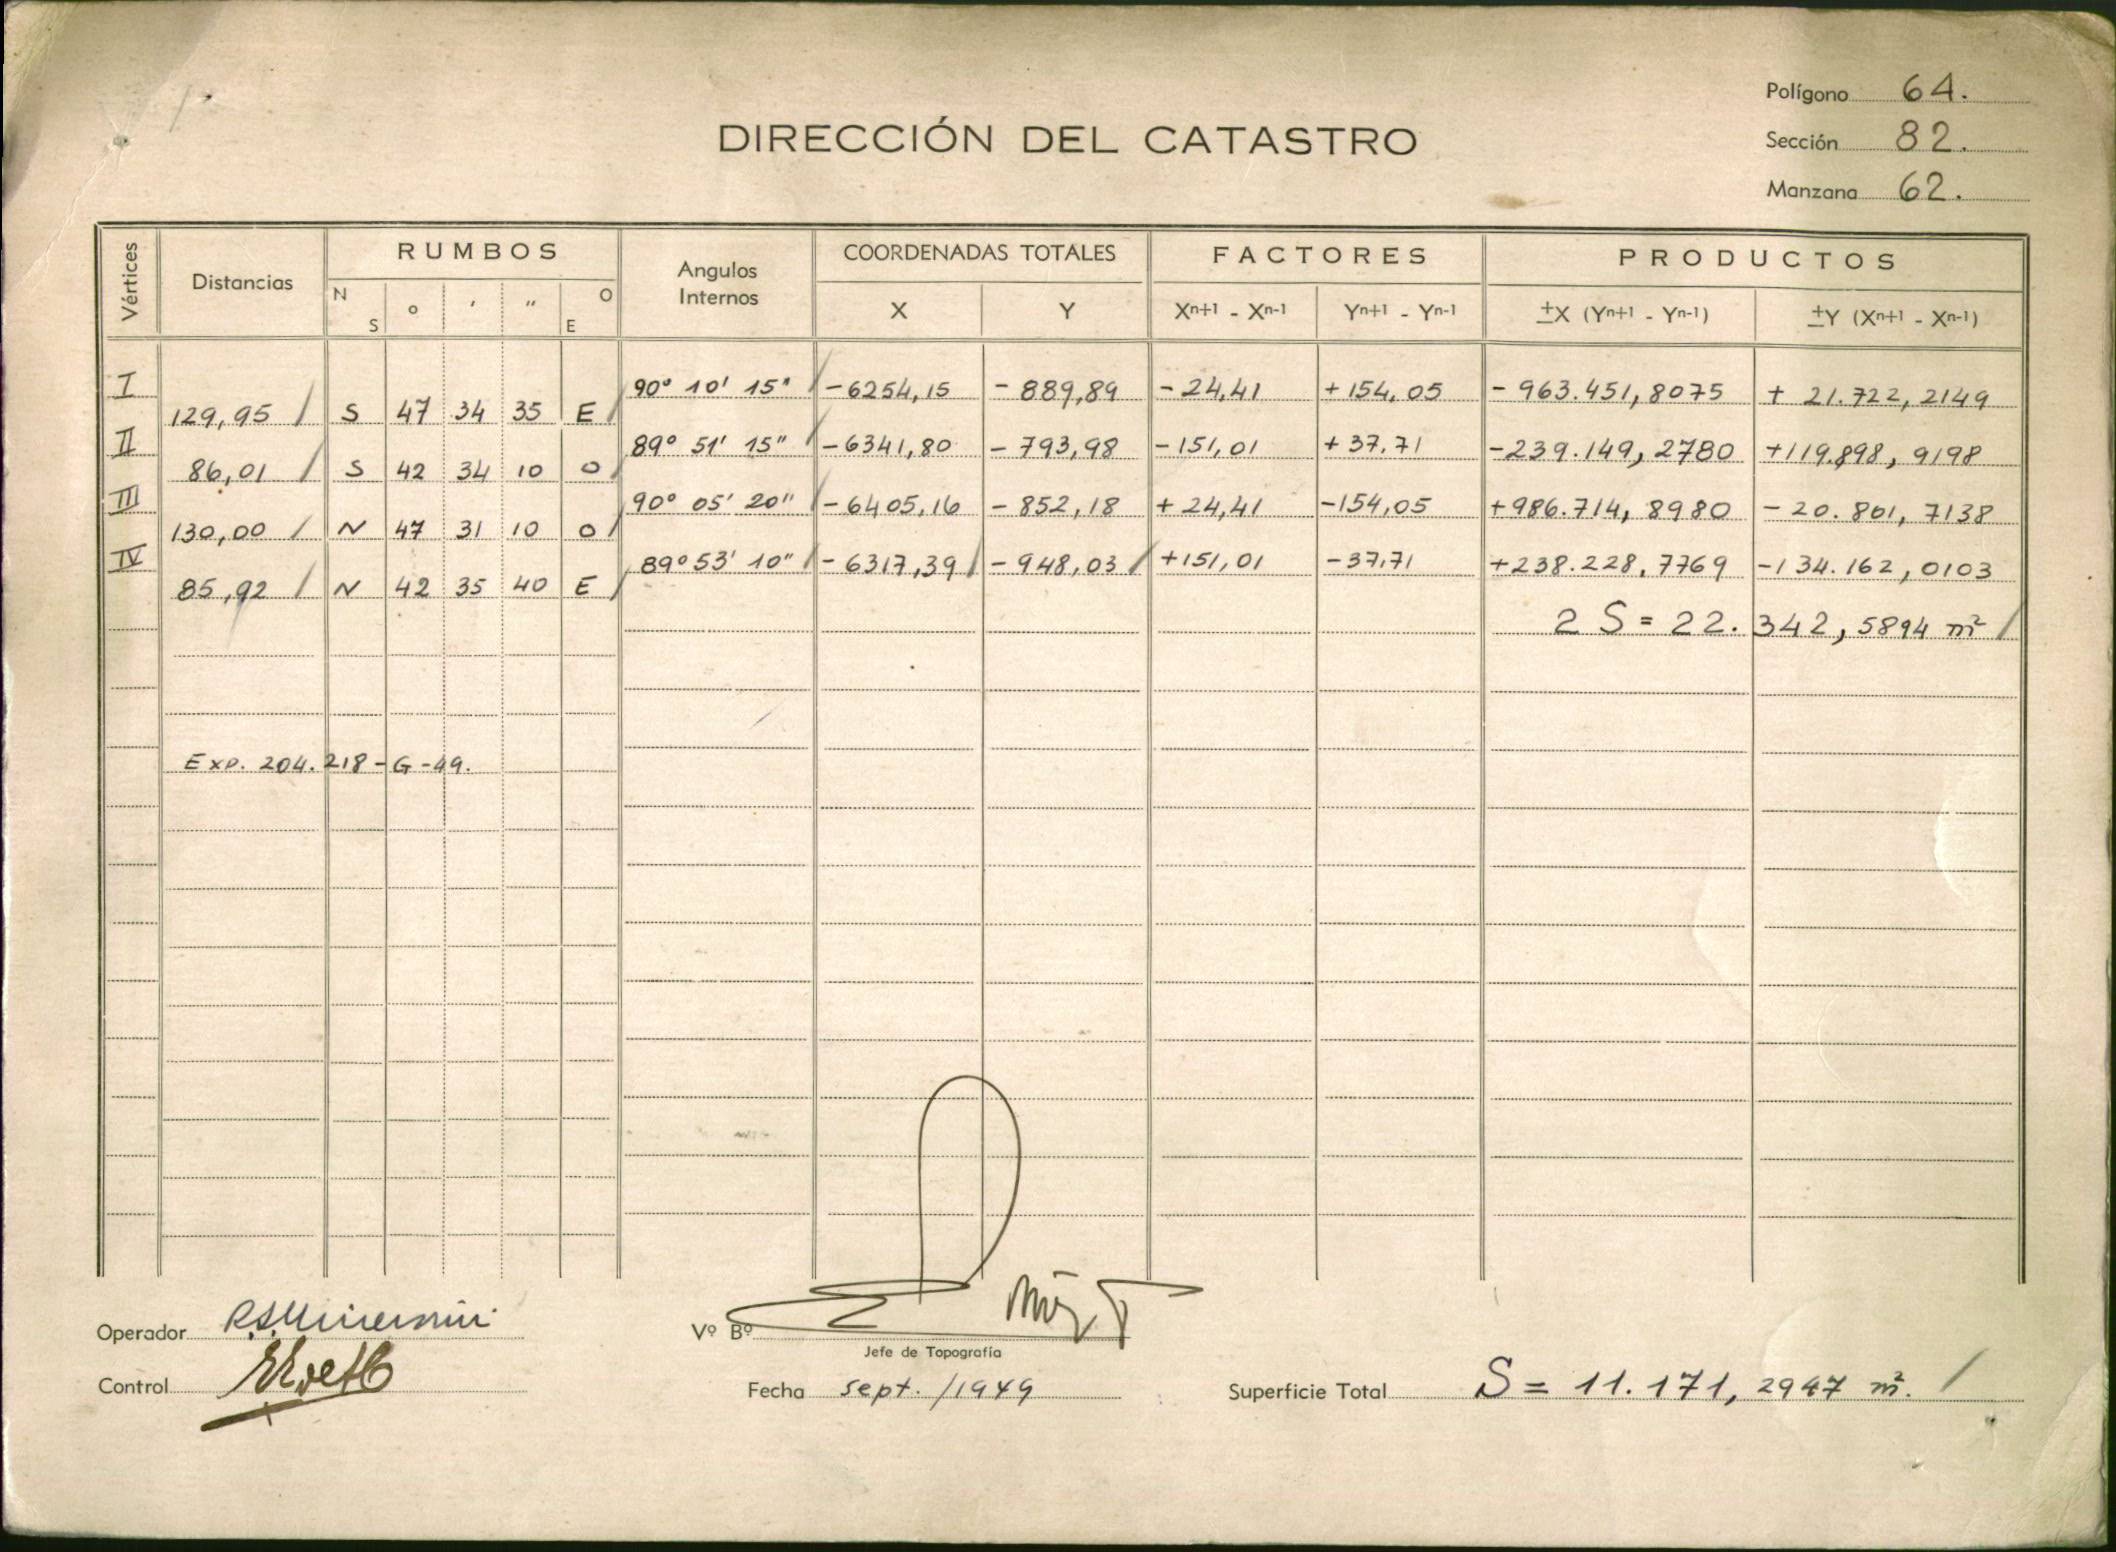 Polígono 64.
DIRECCIÓN DEL CATASTRO
Sección 82.
Manzana 62.
Vértices Distancias RUMBOS Angulos Internos COORDENADAS TOTALES FACTORES PRODUCTOS
N S ° ′ ″ O E X Y Xn+1 - Xn-1 Yn+1 - Yn-1 ±X (Yn+1 - Yn-1) ±Y (Xn+1 - Xn-1)
I 90° 10' 15" -6254,15 - 889,89 - 24,41 + 154,05 - 963.451,8075 + 21.722,2149
129,95 S 47 34 35 E
II 89° 51' 15" -6341,80 - 793,98 -151,01 + 37.71 -239.149,2780 +119.898,9198
86,01 S 42 34 10 O
III 90° 05' 20" -6405,16 - 852,18 + 24,41 -154,05 +986.714,8980 - 20.801,7138
130,00 N 47 31 10 O
IV 89° 53' 10" - 6317,39 - 948,03 +151,01 -37,71 +238.228,7769 -134.162,0103
85,92 N 42 35 40 E
2 S = 22.342,5894 m²
Exp. 204.218-G-49.
Operador
Vº Bº
Jefe de Topografía
Control
Fecha sept./1949
Superficie Total S = 11.171,2947 m².